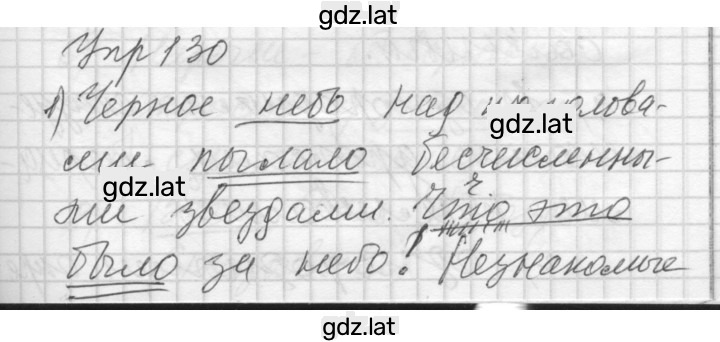 gdz.lat
Упр 130
1) Черное небо над
gdz.lat
пылало бесчисленны-
gdz.lat
ми звездами. Что это
было за небо! Незнакомые
gdz.lat